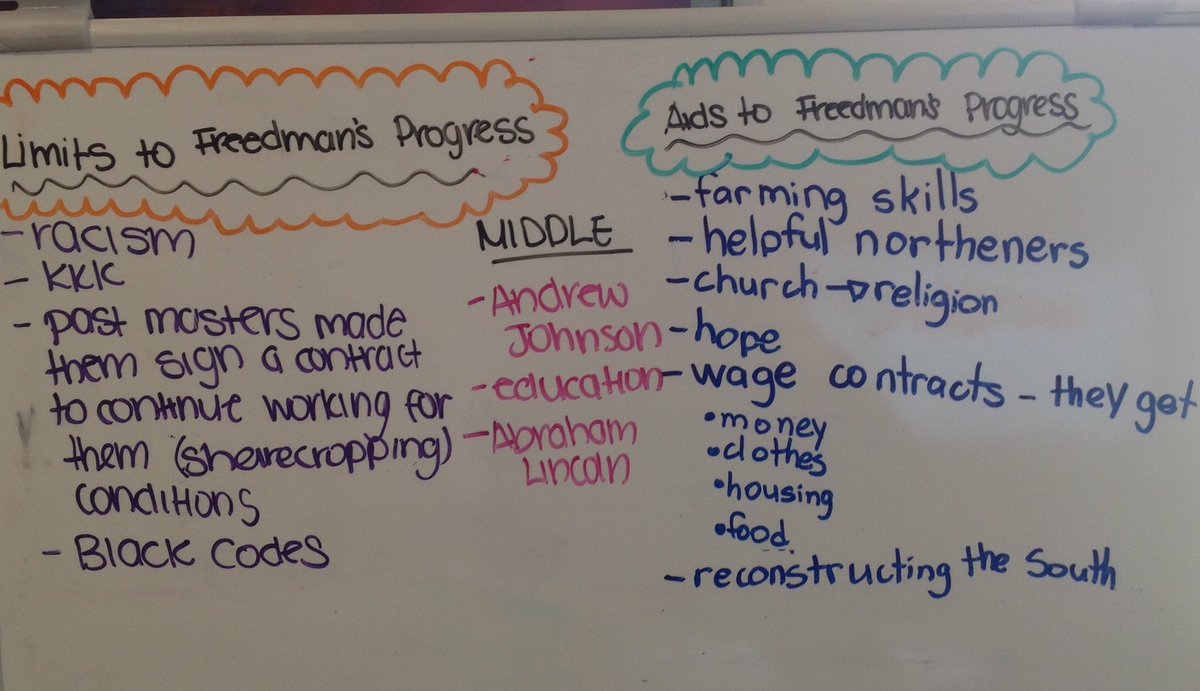 Limits to Freedman's Progress
- racism
- KKK
- past masters made
them sign a contract
to continue working for
them (sharecropping)
conditions
- Black Codes
MIDDLE
- Andrew
Johnson
- education
- Abraham
Lincoln
Aids to Freedman's Progress
- farming skills
- helpful northeners
- church → religion
- hope
- wage contracts - they get
• money
• clothes
• housing
• food
- reconstructing the South